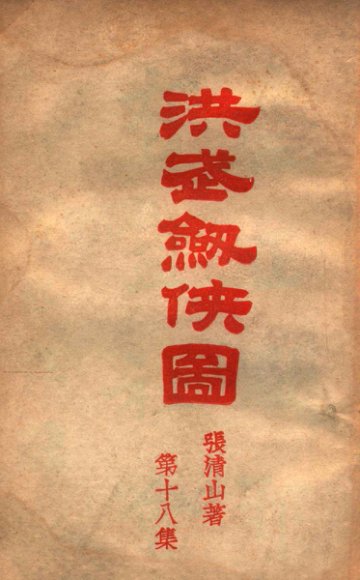 洪武劔俠圖
張清山著
第十八集